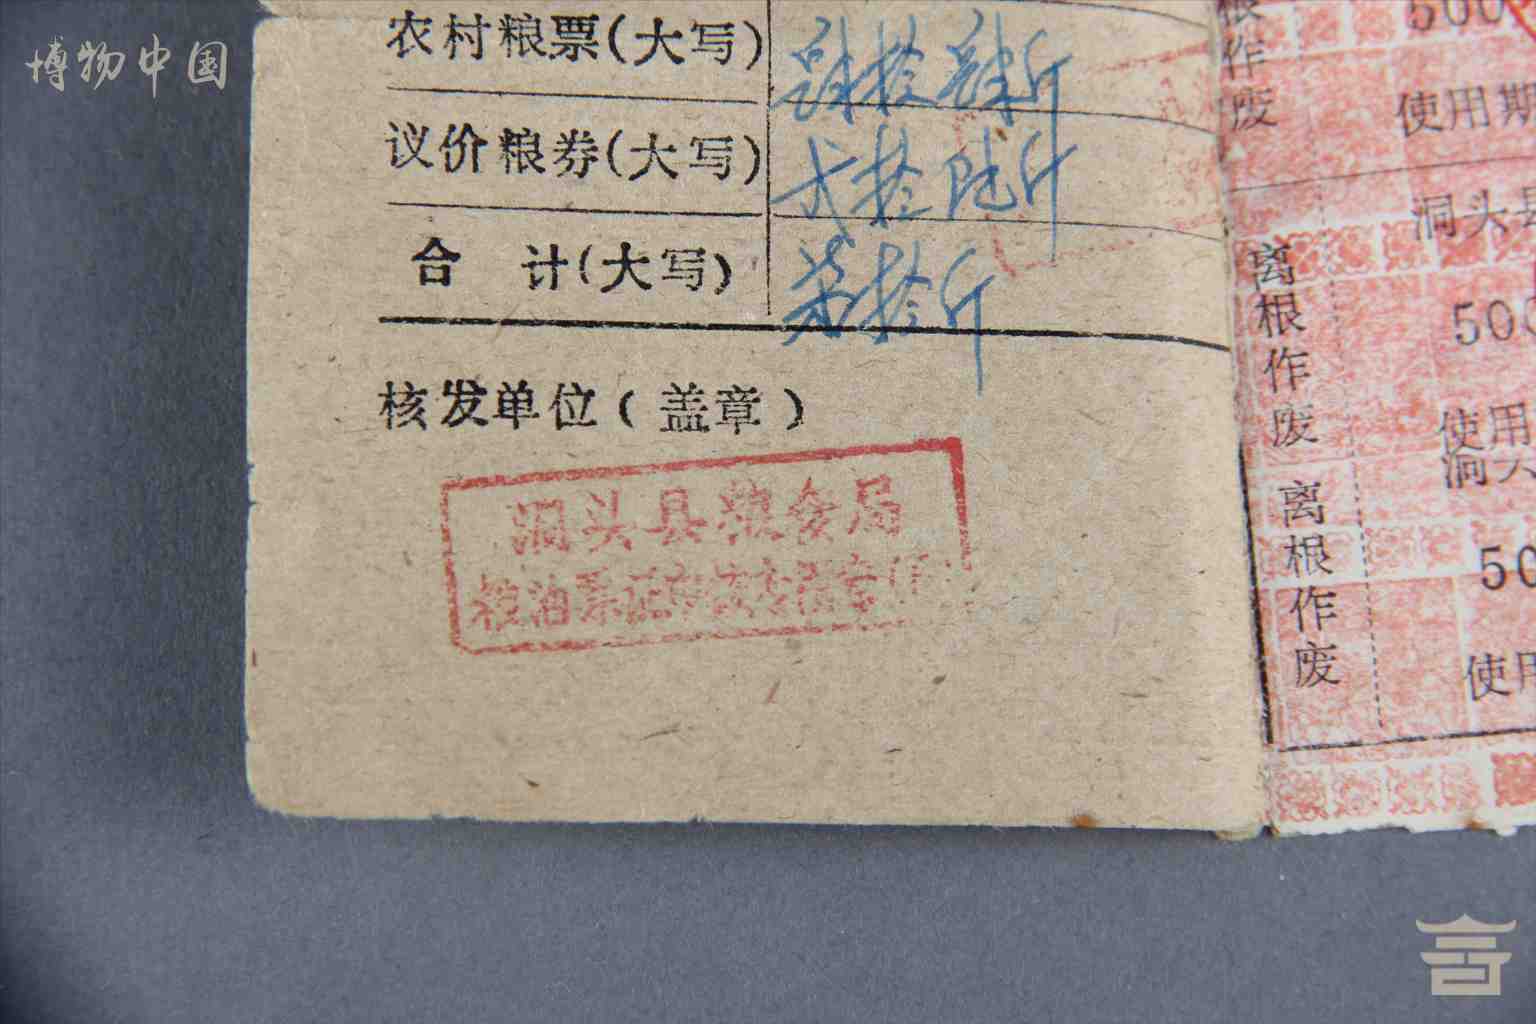 博物中国
农村粮票(大写) 肆拾肆斤
议价粮券(大写) 弍拾陆斤
合 计(大写) 柒拾斤
核发单位(盖章)
洞头县粮食局
粮油票证
根作废
500
使用期
洞头县
离根作废
500
使用
洞头
离根作废
50
使用